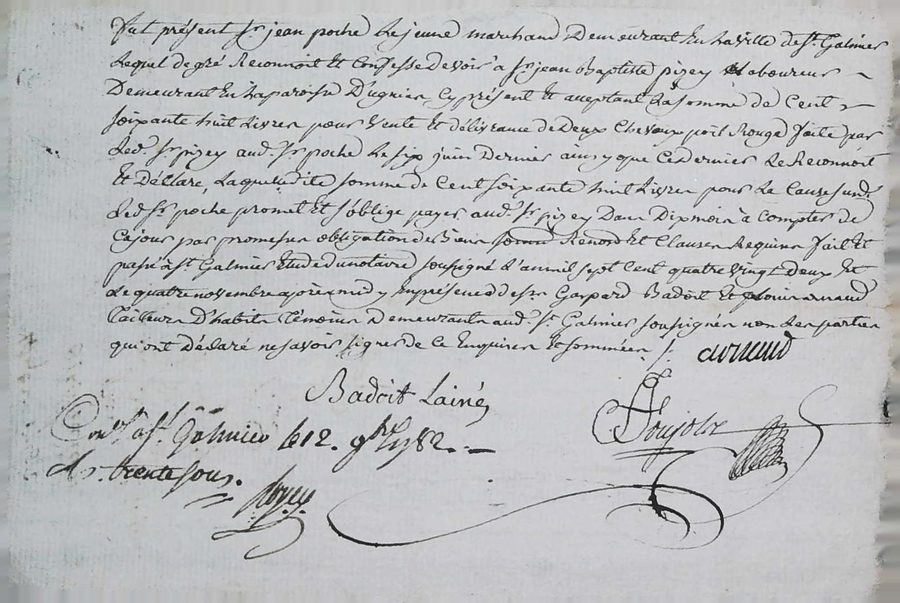 Fut présent Sr. jean poche Le jeune marchand Demeurant En La ville de St. Galmier
Lequel de gré Reconnoit Et Confesse Devoir à Sr. jean Baptiste pizey Laboureur
Demeurant En La paroisse D'ugnias Cy présent Et acceptant La somme de Cent
soixante huit Livres pour Vente Et délivrance de Deux Chevaux poil Rouge faite par
Led. Sr. pizey aud. Sr. poche Le six juin Dernier ainsy que Ce dernier Le Reconnoit
Et Déclare, Laquelle dite somme de Cent soixante huit Livres pour La Cause susd.
Led. Sr. poche promet Et s'oblige payer aud. Sr. pizey Dans Dix mois à Compter de
Ce jour par promesse obligation de Biens soumis Renond Et Clauses Requises fait Et
passé à St. Galmier Etude du notaire soussigné L'an mil sept Cent quatre Vingt Deux Et
Le quatre novembre après midy En présence de Srs. Gaspard Badoit Et Louis arnaud
Tailleurs D'habits Témoins Demeurants aud. St. Galmier soussignés non Les parties
qui ont Déclaré ne savoir signer de Ce Enquises Et sommées /. arnaud
Badoit Lainé
Ponjolz
Conlé. a St. Galmier le 12. 9bre 1782.
Rs. trente sous.